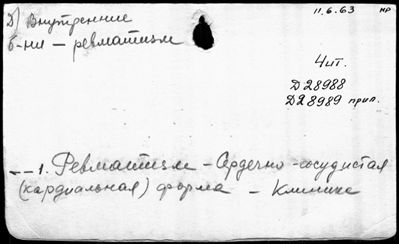 11.6.63 нр
Д) Внутренние
б-ни — ревматизм
Чит.
Д28988
Д28989 прил.
— — 1. Ревматизм — Сердечно-сосудистая
(кардиальная) форма — Клиника